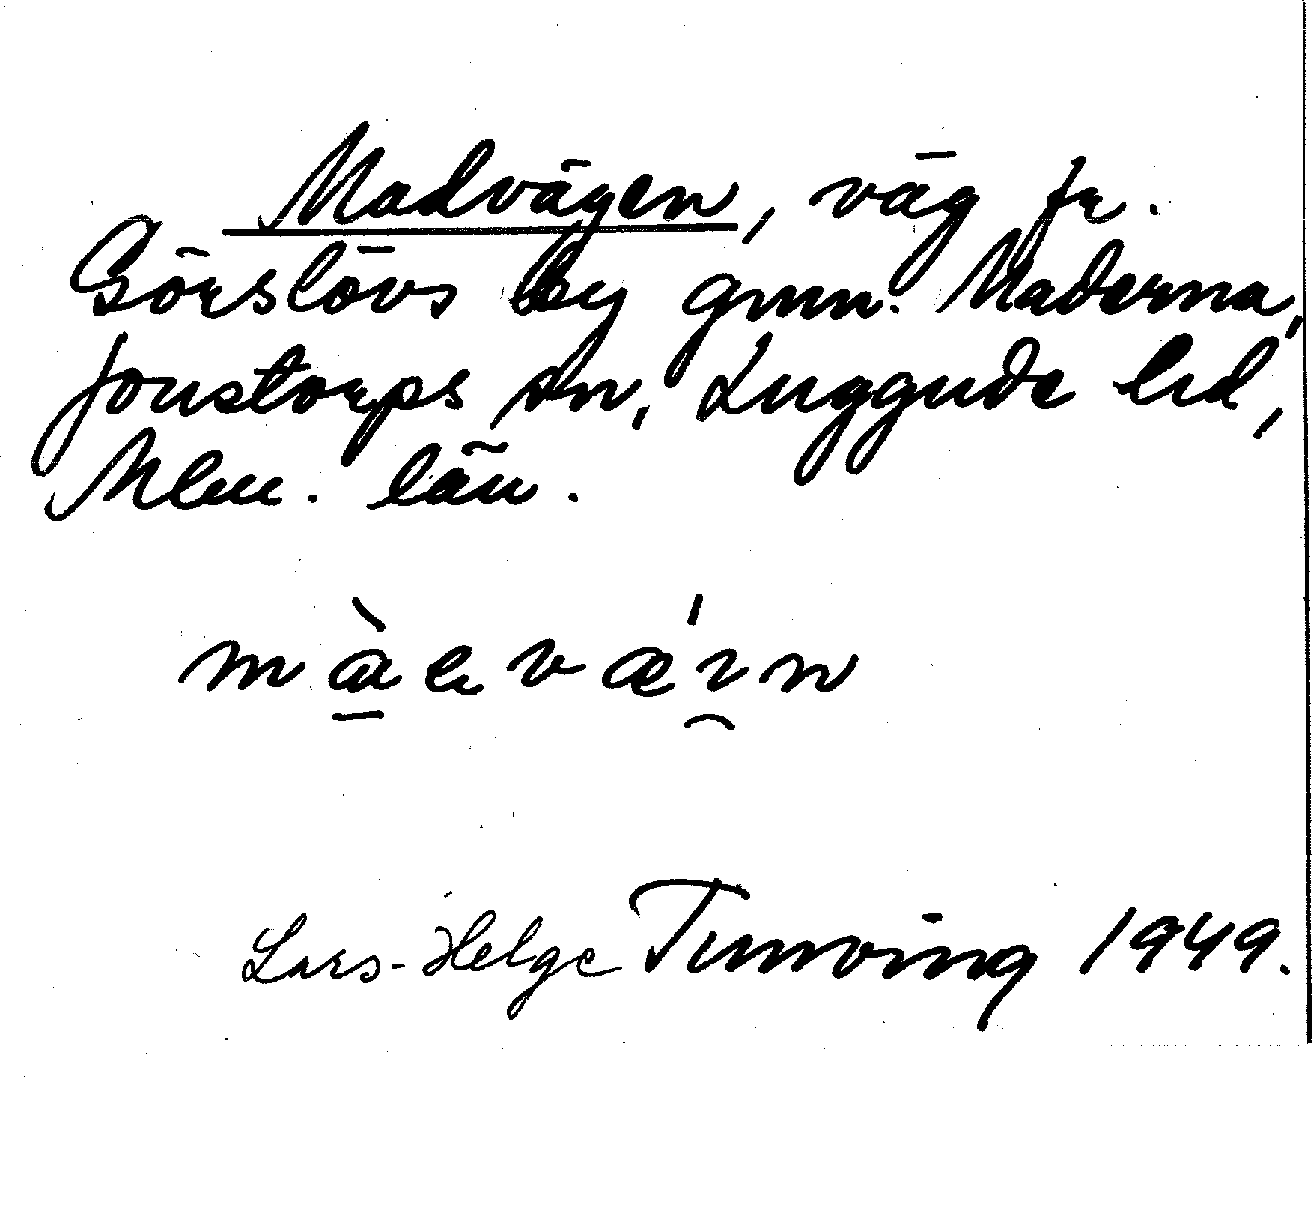 Madvägen, väg fr.
Görslövs by gnm. Maderna,
Jonstorps sn, Luggude hd,
Mlm. län.
Lars-Helge Tunving 1949.